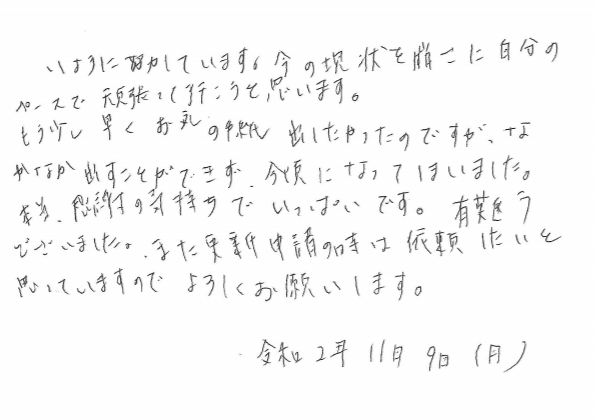 いように努力しています。今の現状を崩さずに自分の
ペースで頑張って行こうと思います。
もう少し早くお礼の手紙出したかったのですが、な
かなか出すことができず、今頃になってしまいました。
本当、感謝の気持ちでいっぱいです。有難う
ございました。また更新申請の時は依頼したいと
思っていますのでよろしくお願いします。
令和2年11月9日(月)